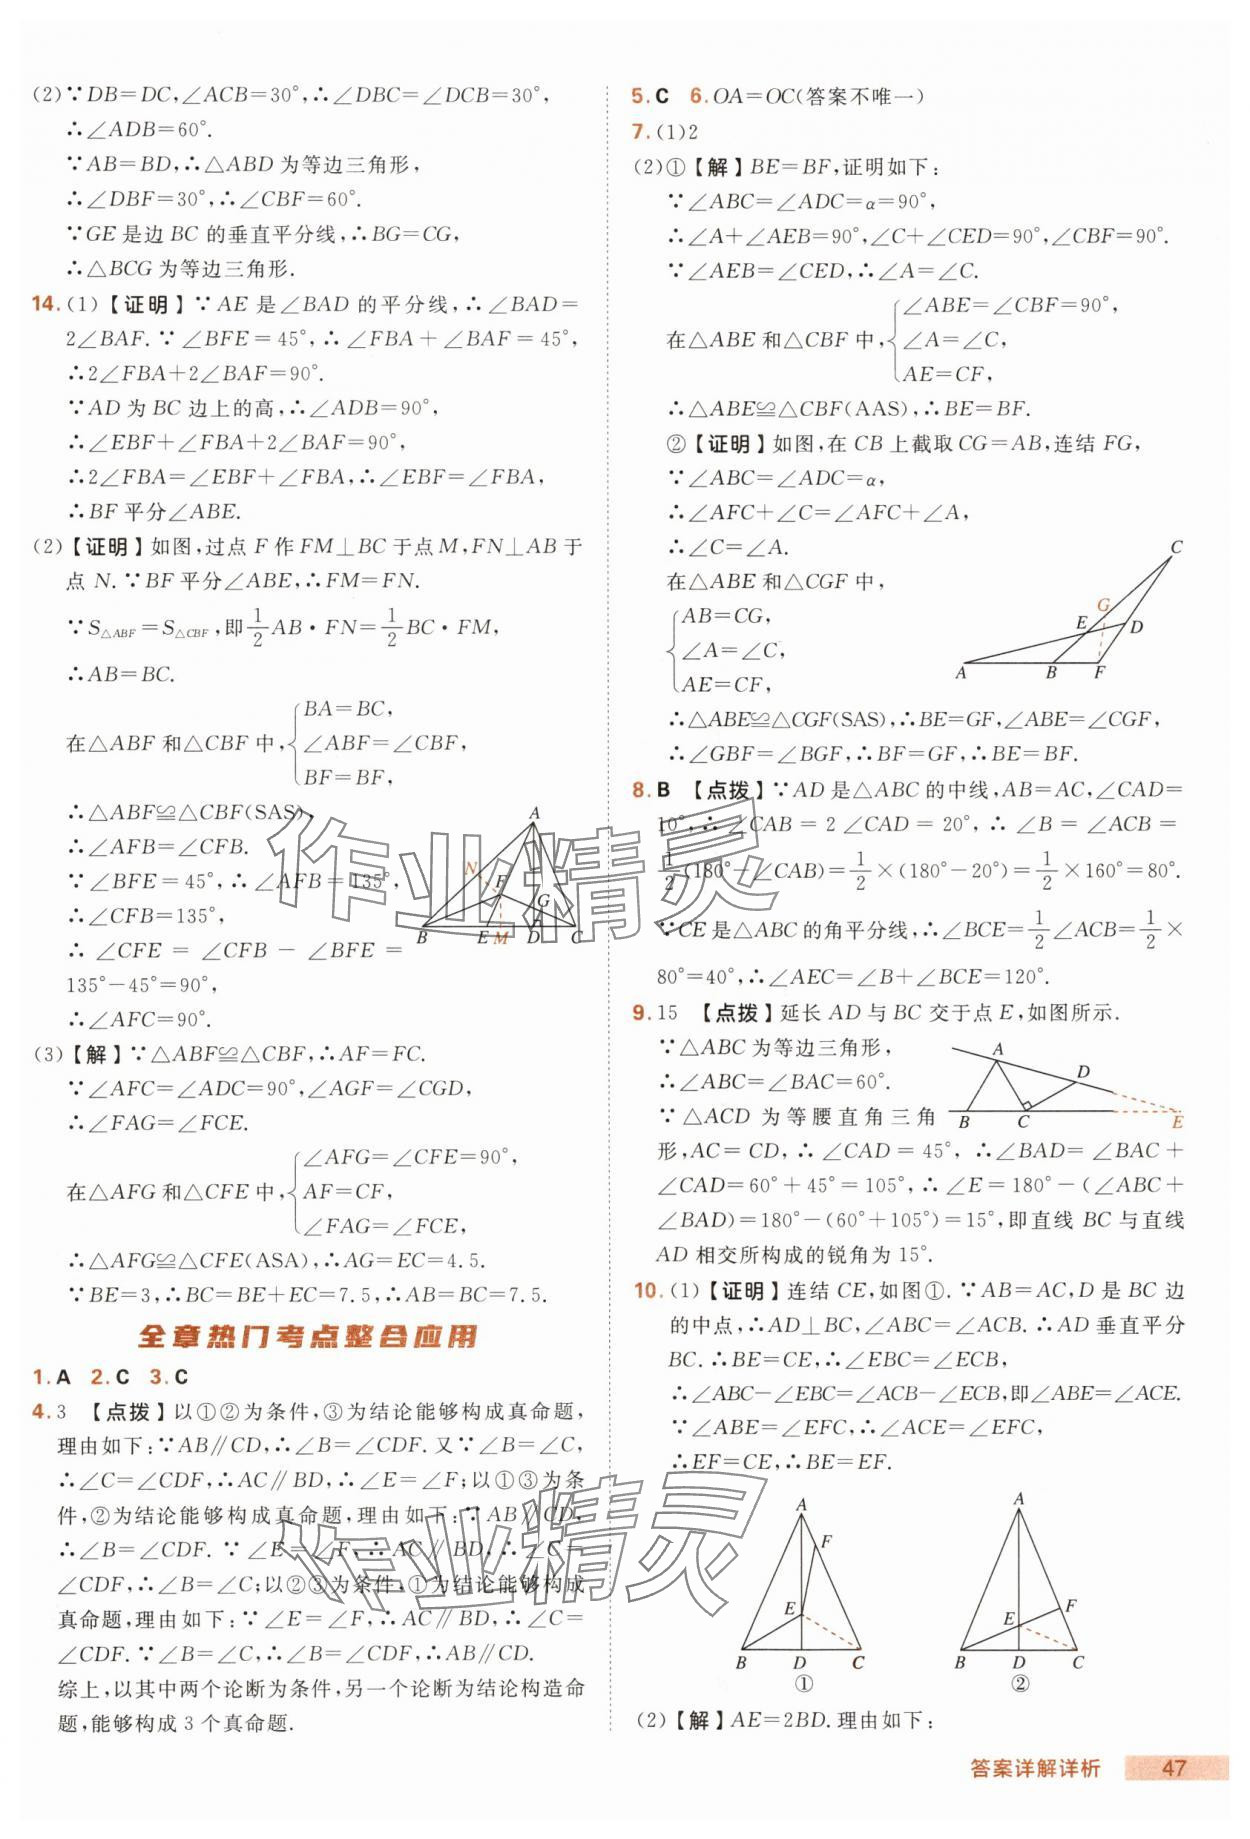 (2)∵DB=DC,∠ACB=30°,∴∠DBC=∠DCB=30°,
∴∠ADB=60°.
∵AB=BD,∴△ABD为等边三角形,
∴∠DBF=30°,∴∠CBF=60°.
∵GE是边BC的垂直平分线,∴BG=CG,
∴△BCG为等边三角形.
14.(1)【证明】∵AE是∠BAD的平分线,∴∠BAD=
2∠BAF.∵∠BFE=45°,∴∠FBA+∠BAF=45°,
∴2∠FBA+2∠BAF=90°.
∵AD为BC边上的高,∴∠ADB=90°,
∴∠EBF+∠FBA+2∠BAF=90°,
∴2∠FBA=∠EBF+∠FBA,∴∠EBF=∠FBA,
∴BF平分∠ABE.
(2)【证明】如图,过点F作FM⊥BC于点M,FN⊥AB于
点N.∵BF平分∠ABE,∴FM=FN.
∵S△ABF=S△CBF,即1/2AB·FN=1/2BC·FM,
∴AB=BC.
在△ABF和△CBF中,{BA=BC,
∠ABF=∠CBF,
BF=BF,
∴△ABF≌△CBF(SAS),
∴∠AFB=∠CFB.
∵∠BFE=45°,∴∠AFB=135°,
∴∠CFB=135°,
∴∠CFE=∠CFB-∠BFE=
135°-45°=90°,
∴∠AFC=90°.
A
N
F
G
B E M D C
(3)【解】∵△ABF≌△CBF,∴AF=FC.
∵∠AFC=∠ADC=90°,∠AGF=∠CGD,
∴∠FAG=∠FCE.
在△AFG和△CFE中,{∠AFG=∠CFE=90°,
AF=CF,
∠FAG=∠FCE,
∴△AFG≌△CFE(ASA),∴AG=EC=4.5.
∵BE=3,∴BC=BE+EC=7.5,∴AB=BC=7.5.
全章热门考点整合应用
1.A 2.C 3.C
4.3 【点拨】以①②为条件,③为结论能够构成真命题,
理由如下:∵AB∥CD,∴∠B=∠CDF.又∵∠B=∠C,
∴∠C=∠CDF,∴AC∥BD,∴∠E=∠F;以①③为条
件,②为结论能够构成真命题,理由如下:∵AB∥CD,
∴∠B=∠CDF.∵∠E=∠F,∴AC∥BD,∴∠C=
∠CDF,∴∠B=∠C;以②③为条件,①为结论能够构成
真命题,理由如下:∵∠E=∠F,∴AC∥BD,∴∠C=
∠CDF.∵∠B=∠C,∴∠B=∠CDF,∴AB∥CD.
综上,以其中两个论断为条件,另一个论断为结论构造命
题,能够构成3个真命题.
5.C 6.OA=OC(答案不唯一)
7.(1)2
(2)①【解】BE=BF,证明如下:
∵∠ABC=∠ADC=α=90°,
∴∠A+∠AEB=90°,∠C+∠CED=90°,∠CBF=90°.
∵∠AEB=∠CED,∴∠A=∠C.
在△ABE和△CBF中,{∠ABE=∠CBF=90°,
∠A=∠C,
AE=CF,
∴△ABE≌△CBF(AAS),∴BE=BF.
②【证明】如图,在CB上截取CG=AB,连结FG,
∵∠ABC=∠ADC=α,
∴∠AFC+∠C=∠AFC+∠A,
∴∠C=∠A.
在△ABE和△CGF中,
{AB=CG,
∠A=∠C,
AE=CF,
C
G
E D
A B F
∴△ABE≌△CGF(SAS),∴BE=GF,∠ABE=∠CGF,
∴∠GBF=∠BGF,∴BF=GF,∴BE=BF.
8.B 【点拨】∵AD是△ABC的中线,AB=AC,∠CAD=
10°,∴∠CAB=2∠CAD=20°,∴∠B=∠ACB=
1/2(180°-∠CAB)=1/2×(180°-20°)=1/2×160°=80°.
∵CE是△ABC的角平分线,∴∠BCE=1/2∠ACB=1/2×
80°=40°,∴∠AEC=∠B+∠BCE=120°.
9.15 【点拨】延长AD与BC交于点E,如图所示.
∵△ABC为等边三角形,
∴∠ABC=∠BAC=60°.
∵△ACD为等腰直角三角
A
D
B C E
形,AC=CD,∴∠CAD=45°,∴∠BAD=∠BAC+
∠CAD=60°+45°=105°,∴∠E=180°-(∠ABC+
∠BAD)=180°-(60°+105°)=15°,即直线BC与直线
AD相交所构成的锐角为15°.
10.(1)【证明】连结CE,如图①.∵AB=AC,D是BC边
的中点,∴AD⊥BC,∠ABC=∠ACB.∴AD垂直平分
BC.∴BE=CE,∴∠EBC=∠ECB,
∴∠ABC-∠EBC=∠ACB-∠ECB,即∠ABE=∠ACE.
∵∠ABE=∠EFC,∴∠ACE=∠EFC,
∴EF=CE,∴BE=EF.
A
F
E
B D C
①
A
F
E
B D C
②
(2)【解】AE=2BD.理由如下:
答案详解详析 47
作业精灵
作业精灵